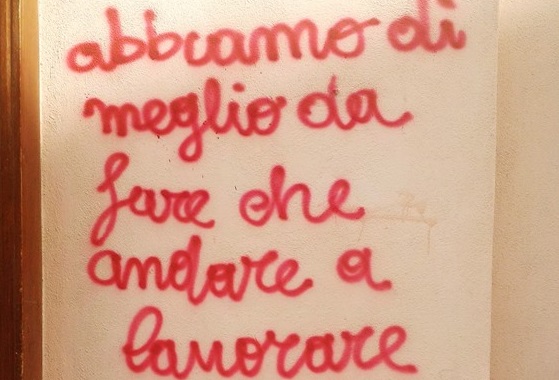 abbiamo di
meglio da
fare che
andare a
lavorare